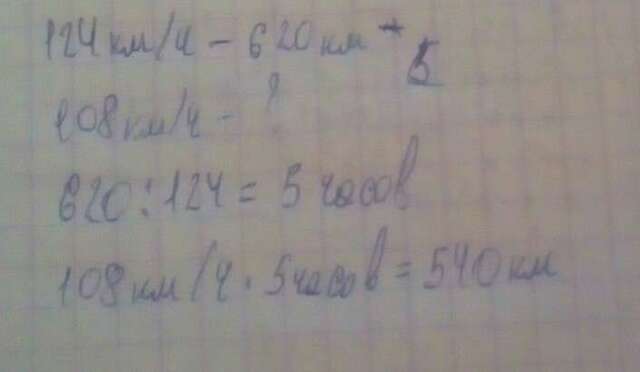 124 км/ч - 620 км * 5
108 км/ч - ?
620 : 124 = 5 часов
108 км/ч · 5 часов = 540 км